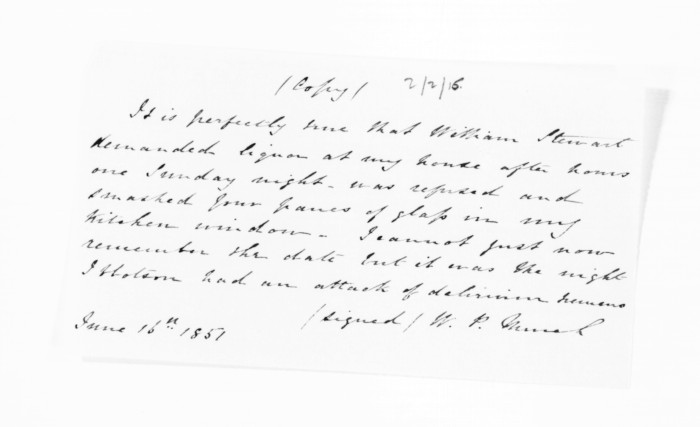 (Copy) 2/2/16.
It is perfectly true that William Stewart
demanded liquor at my house after hours
one Sunday night - was refused and
smashed four panes of glass in my
Kitchen window - I cannot just now
remember the date but it was the night
Ibbotson had an attack of delirium tremens
(signed) W. P.
June 16th 1851